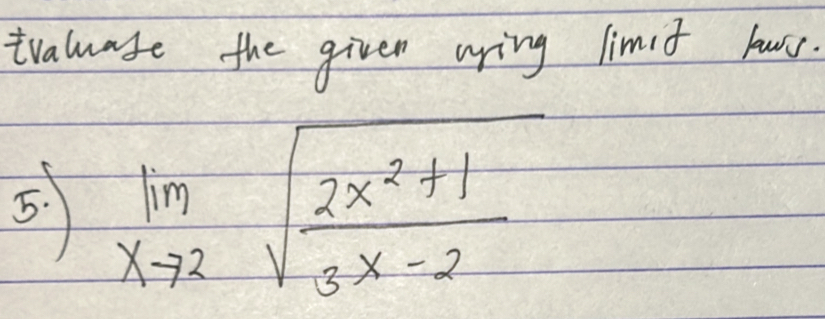 Evaluate the given using limit laws.
5.) lim x→2 √((2x²+1)/(3x-2))